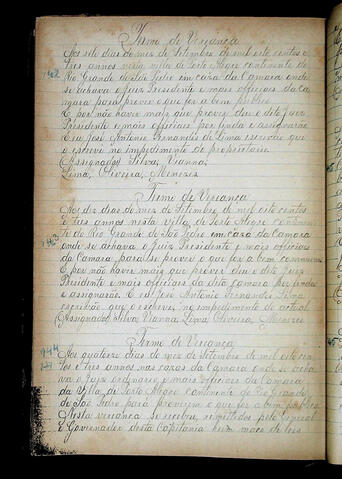 Termo de Veriança
Aos sete dias do mes de Setembro de mil oito centos e
tres annos nesta villa de Porto Alegre continente do
Rio Grande de São Pedro em caza da Camara onde
se achava o Juiz Presidente e mais officiaes da ca
mara para prover o que for a bem publico.
E por não haver mais que prover deu o dito Juiz
Presidente e mais officiaes por finda e assignarão
E eu José Antonio Fernandes de Lima escrivão que
o escrevi no impedimento do proprietario.
Assignados Silva, Vianna,
Lima, Oliveira, Menezes
Termo de Veriança
Aos dez dias do mez de Setembro de mil oito centos
e tres annos nesta Villa de Porto Alegre continen
te do Rio Grande de São Pedro em caza da Camara
onde se achava o Juiz Presidente e mais officiaes
da Camara para se prover o que for a bem commum
E por não haver mais que prover deu o dito Juiz
Presidente e mais officiaes da dita camara por finda
e assignarão. E eu José Antonio Fernandes Lima
escrivão que o escrevi, no impedimento do actual
Assignados Silva, Vianna, Lima, Oliveira, Menezes
Termo de Veriança
Aos quatorze dias do mez de Setembro de mil oito cen
tos e tres annos, nas cazas da Camara onde se acha
va o Juiz ordinario e mais officiaes da Camara
da Villa de Porto Alegre Continente do Rio Grande
de São Pedro para proverem o que for a bem publico
Nesta veriança se recebeu, remettidos pelo General
E Governador desta Capitania hum maço de